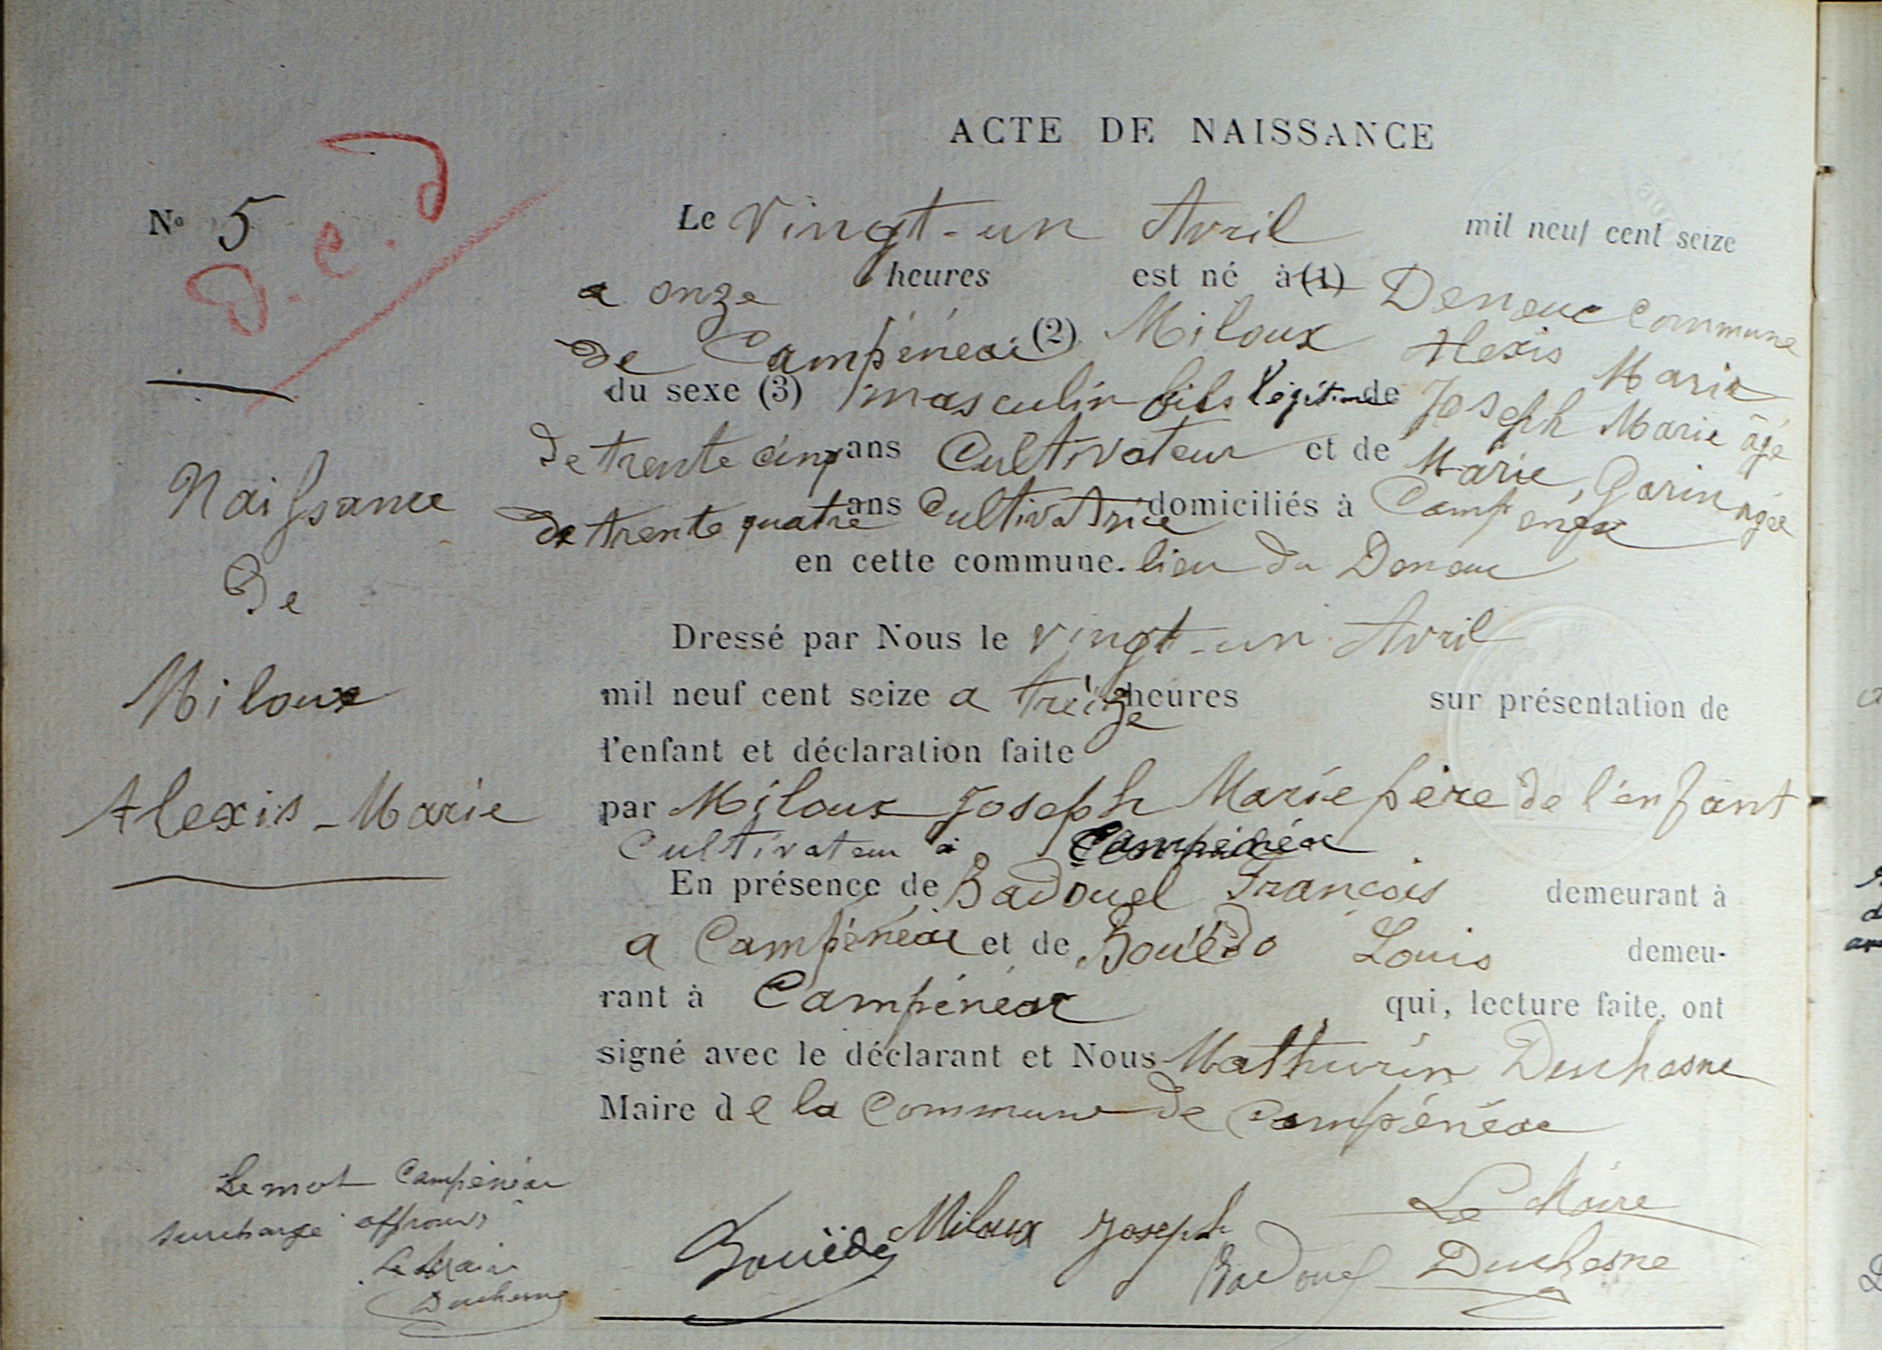 ACTE DE NAISSANCE
N° 5
D.C.D
Le Vingt-un Avril mil neuf cent seize
a onze heures est né à (1) Deneuc commune
de Campénéac (2) Miloux Alexis Marie
du sexe (3) masculin fils légitime de Joseph Marie âgé
de trente cinq ans Cultivateur et de Marie, Garin agée
de trente quatre ans Cultivatrice domiciliés à Campénéac
en cette commune. lieu du Deneuc
Naissance
de
Miloux
Alexis-Marie
Dressé par Nous le vingt-un Avril
mil neuf cent seize a treize heures sur présentation de
l'enfant et déclaration faite
par Miloux Joseph Marie père de l'enfant
Cultivateur à Campénéac
En présence de Badouel François demeurant à
a Campénéac et de Bouëdo Louis demeu-
rant à Campénéac qui, lecture faite, ont
signé avec le déclarant et Nous Mathurin Duchesne
Maire de la commune de Campénéac
Le mot Campénéac
surchargé approuvé
Le Maire
Duchesne
Bouëdo Miloux Joseph Badouel
Le Maire
Duchesne